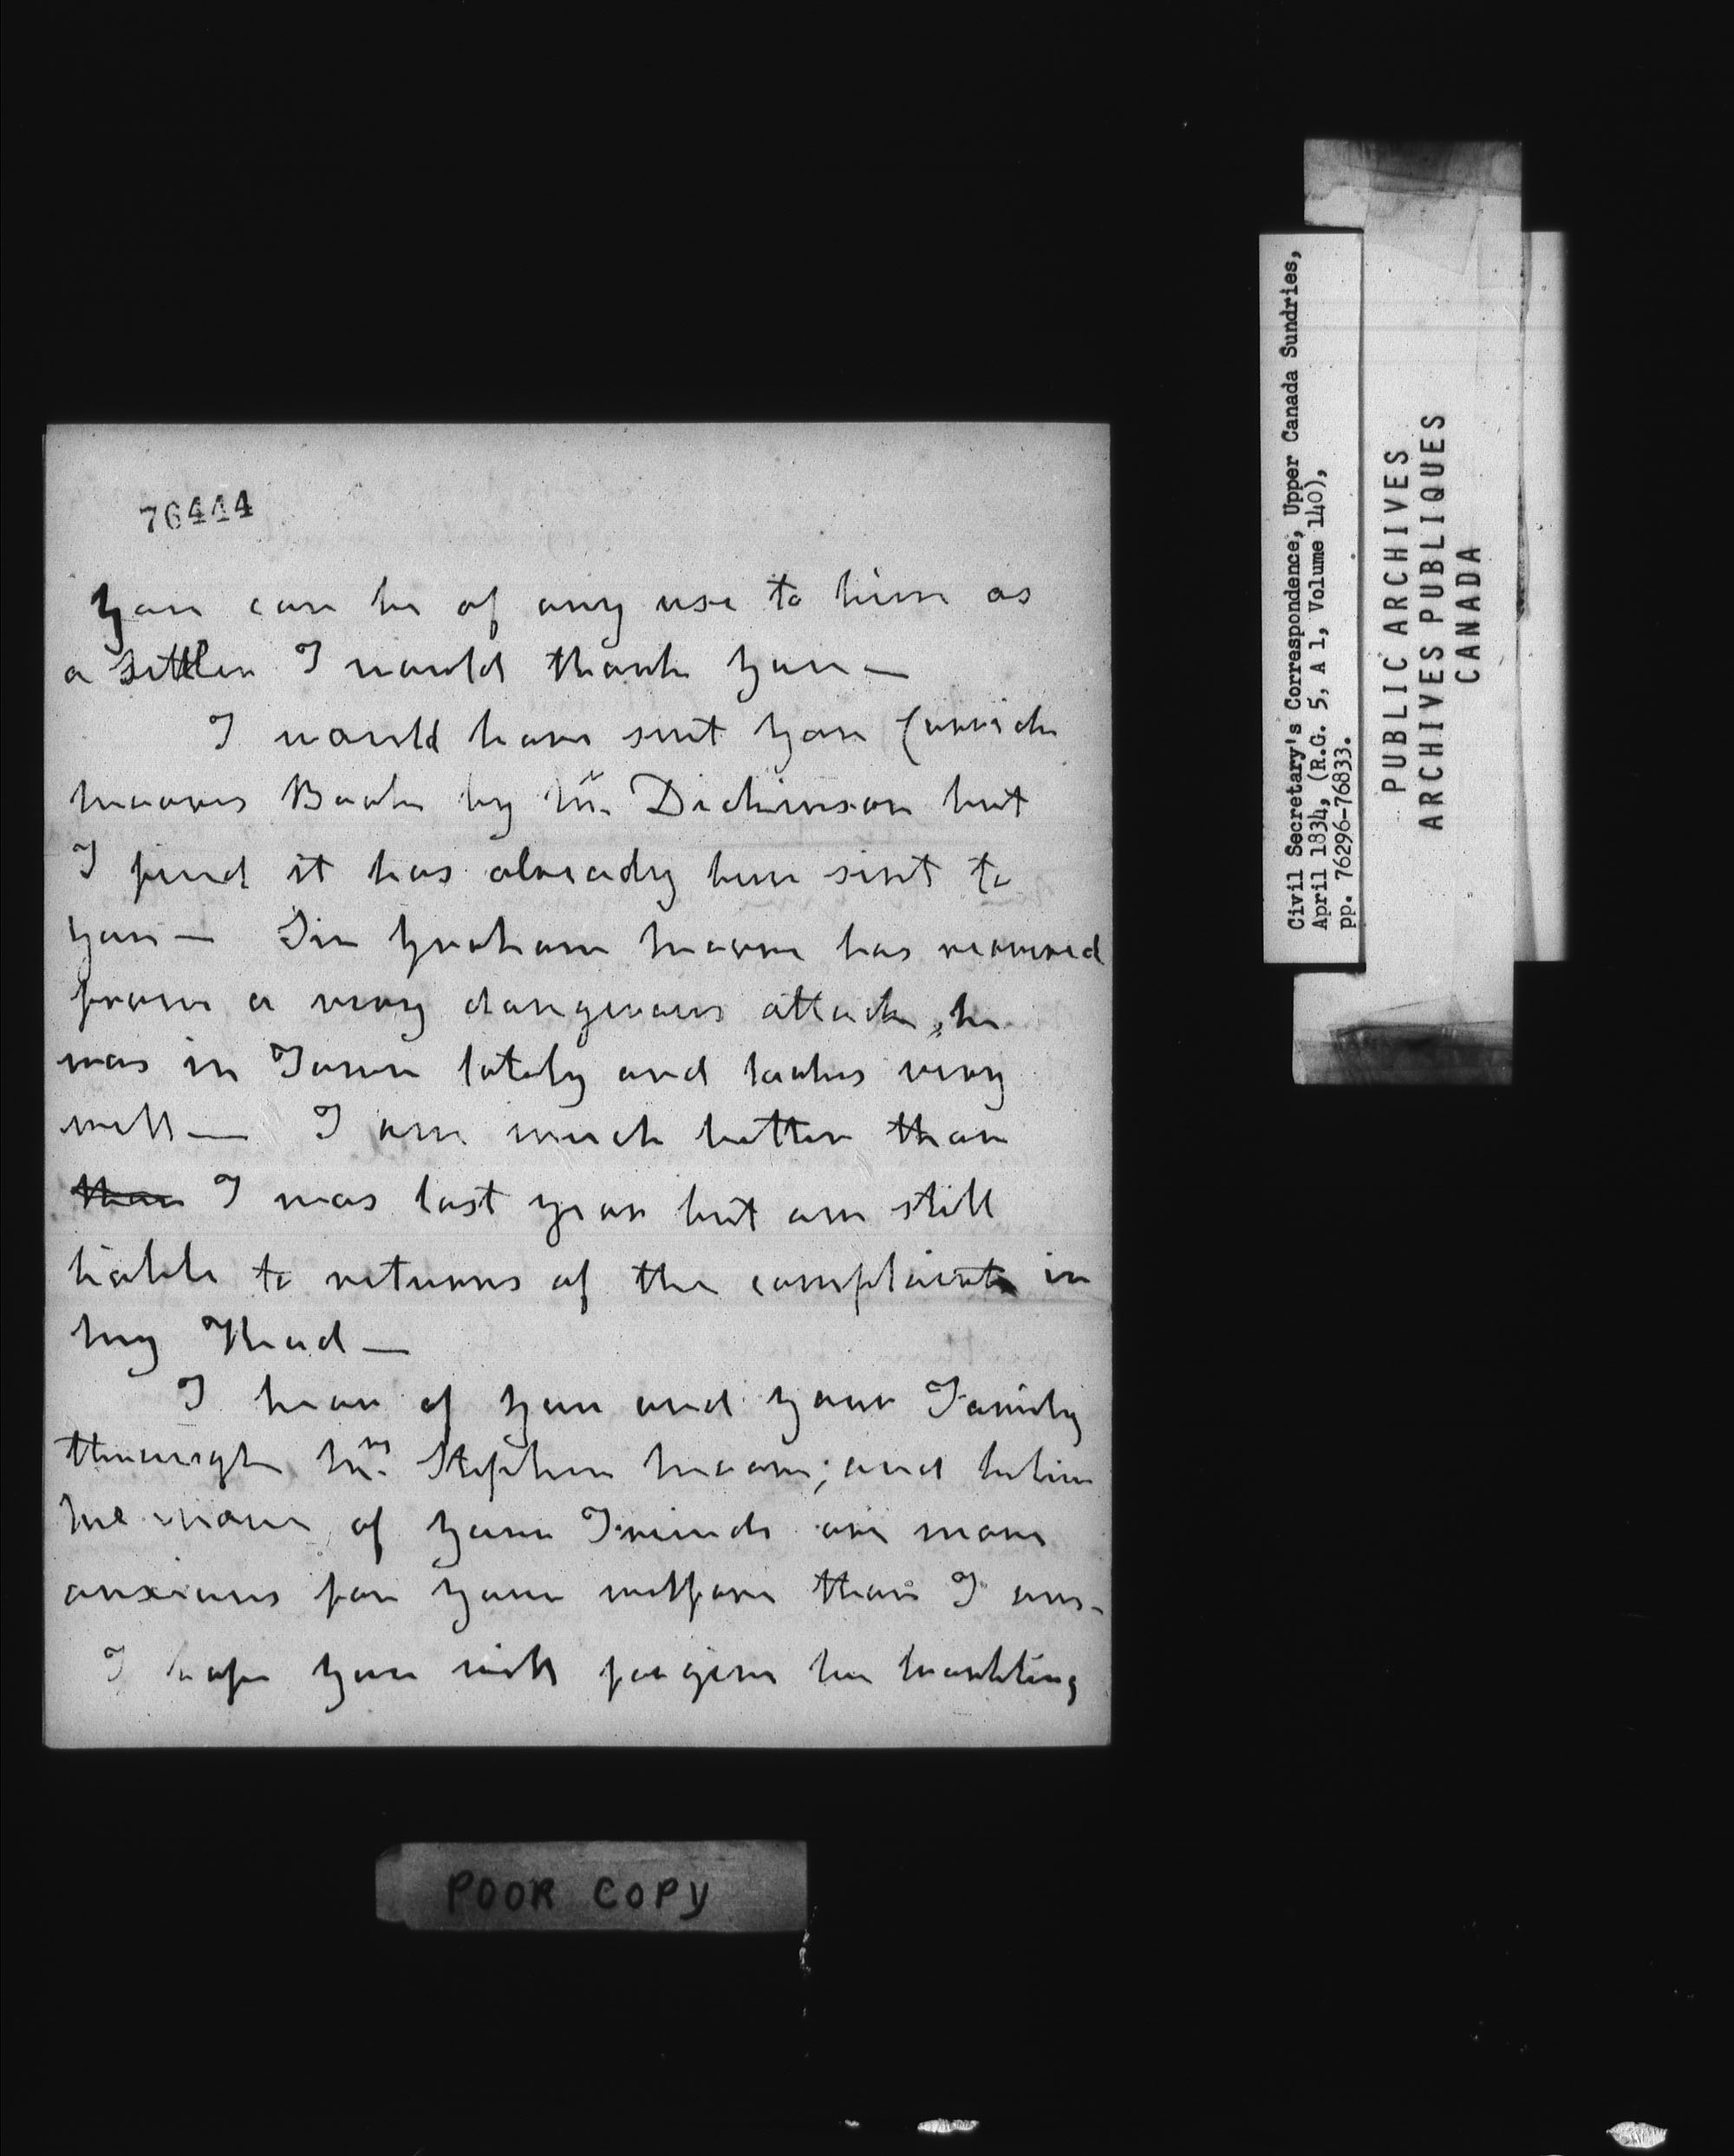 76444
you can be of any use to him as
a settler I would thank you —
I would have sent you Carrick
Moores Book by Mr. Dickinson but
I find it has already been sent to
you — Sir Graham Moore has recovered
from a very dangerous attack, he
was in Town lately and looks very
well — I am much better than
than I was last year but am still
liable to returns of the complaint in
my Head —
I hear of you and your Family
through Mrs. Stephen Moore; and believe
me none of your Friends are more
anxious for your welfare than I am -
I hope you will forgive me troubling
POOR COPY
Civil Secretary's Correspondence, Upper Canada Sundries,
April 1834, (R.G. 5, A 1, Volume 140),
pp. 76296-76833.
PUBLIC ARCHIVES
ARCHIVES PUBLIQUES
CANADA